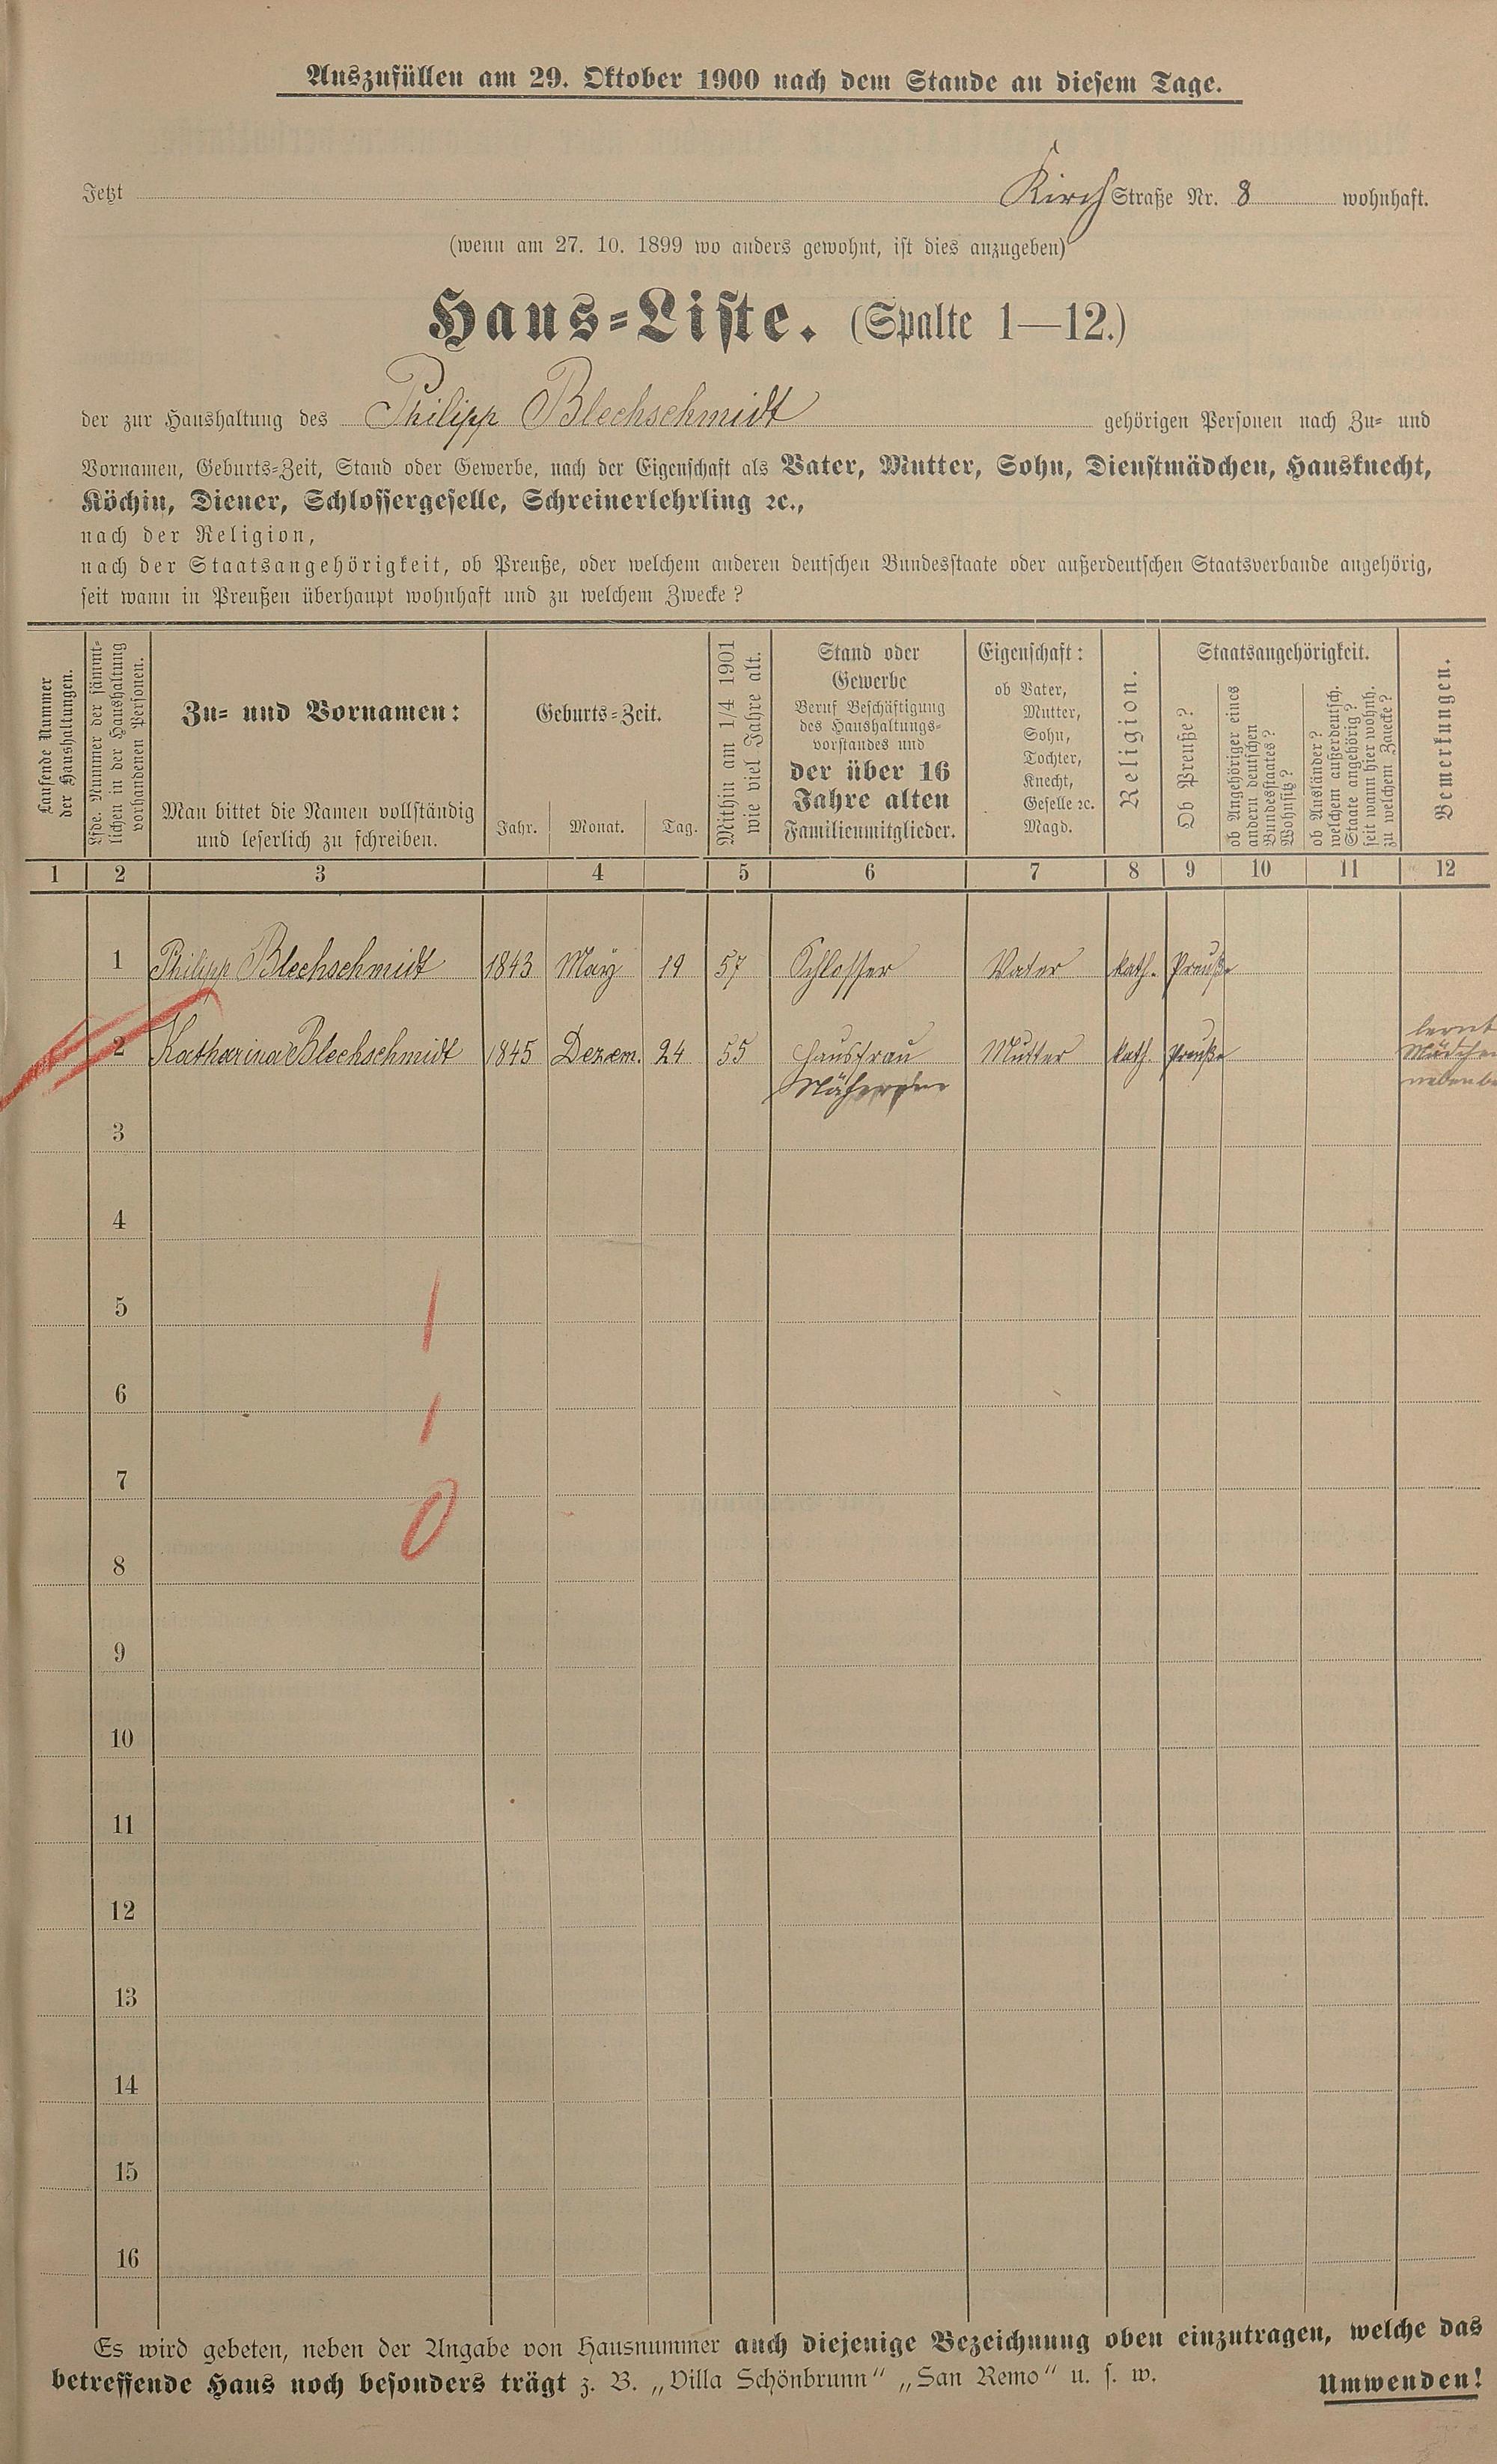 Auszufüllen am 29. Oktober 1900 nach dem Stande an diesem Tage.
Jetzt Kirch Straße Nr. 8 wohnhaft.
(wenn am 27. 10. 1899 wo anders gewohnt, ist dies anzugeben)
Haus-Liste. (Spalte 1—12.)
der zur Haushaltung des Philipp Blechschmidt gehörigen Personen nach Zu- und
Vornamen, Geburts-Zeit, Stand oder Gewerbe, nach der Eigenschaft als Vater, Mutter, Sohn, Dienstmädchen, Hausknecht,
Köchin, Diener, Schlossergeselle, Schreinerlehrling ꝛc.,
nach der Religion,
nach der Staatsangehörigkeit, ob Preuße, oder welchem anderen deutschen Bundesstaate oder außerdeutschen Staatsverbande angehörig,
seit wann in Preußen überhaupt wohnhaft und zu welchem Zwecke?
Laufende Nummer
der Haushaltungen.
Lfde. Nummer der sämmt-
lichen in der Haushaltung
vorhandenen Personen.
Zu- und Vornamen:
Man bittet die Namen vollständig
und leserlich zu schreiben.
Geburts-Zeit.
Jahr. Monat. Tag.
Mithin am 1/4 1901
wie viel Jahre alt.
Stand oder
Gewerbe
Beruf Beschäftigung
des Haushaltungs-
vorstandes und
der über 16
Jahre alten
Familienmitglieder.
Eigenschaft:
ob Vater,
Mutter,
Sohn,
Tochter,
Knecht,
Geselle ꝛc.
Magd.
Religion.
Staatsangehörigkeit.
Ob Preuße?
ob Angehöriger eines
andern deutschen
Bundesstaates?
Wohnsitz?
ob Ausländer?
welchem außerdeutsch.
Staate angehörig?
seit wann hier wohnh.
zu welchem Zwecke?
Bemerkungen.
1 2 3 4 5 6 7 8 9 10 11 12
1 Philipp Blechschmidt 1843 May 19 57 Schlosser Vater kath. Preuße
2 Katharina Blechschmidt 1845 Dezem. 24 55 Hausfrau Mutter kath. Preuße
lernt
Mädchen
3
4
5
6
7
8
9
10
11
12
13
14
15
16
Es wird gebeten, neben der Angabe von Hausnummer auch diejenige Bezeichnung oben einzutragen, welche das
betreffende Haus noch besonders trägt z. B. „Villa Schönbrunn“ „San Remo“ u. s. w. Umwenden!